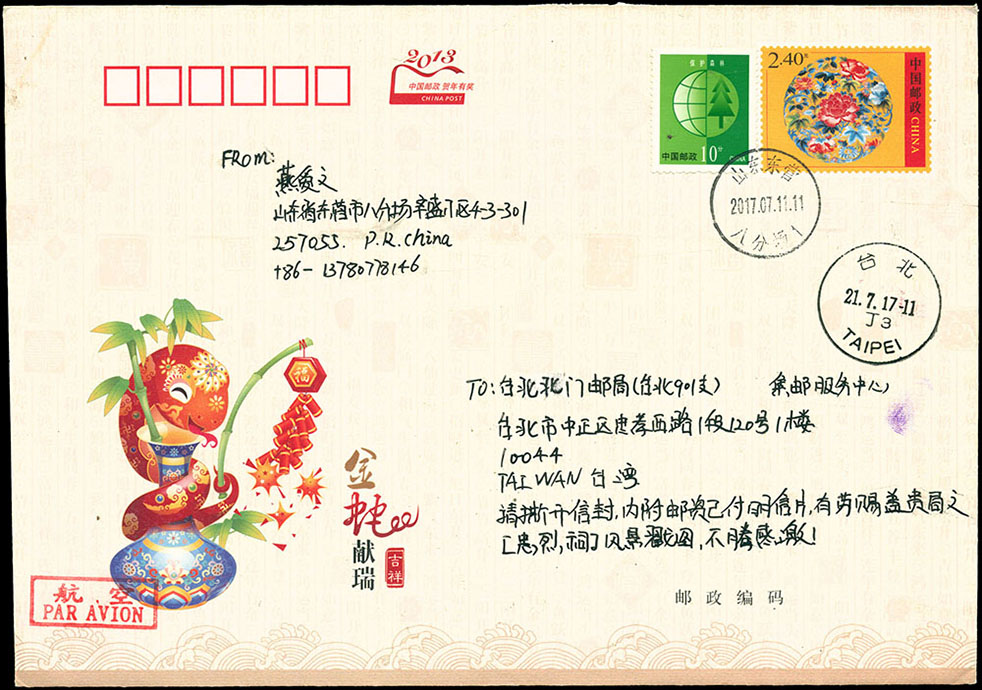 2013
中国邮政 贺年有奖
CHINA POST
保护森林
中国邮政 10分 CHINA
2.40元
中国邮政 CHINA
山东东营
2017.07.11.11
八分场1
台北
21.7.17-11
J3
TAIPEI
FROM:
燕 文
山东省东营市八分场 区4-3-301
257055. P.R.China
+86-13780778146
福
金蛇献瑞
吉祥
TO: 台北北门邮局(台北901支) 集邮服务中心
台北市中正区忠孝西路1段120号1楼
10044
TAIWAN 台湾
请撕开信封,内附邮资已付明信片,有劳赐盖贵局文
[忠,烈,祠]风景戳图,不胜感激!
航空
PAR AVION
邮政编码